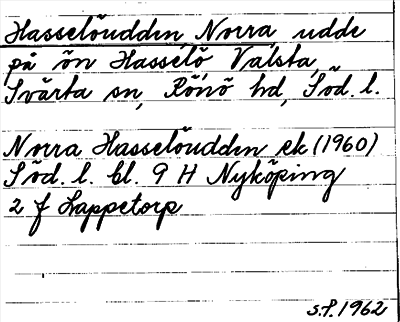 Hasselöudden, Norra, udde
på ön Hasselö Valsta,
Svärta sn, Rönö hd, Söd. l.
Norra Hasselöudden ek (1960)
Söd. l. bl. 9 H Nyköping
2 f Lappetorp
S.P. 1962